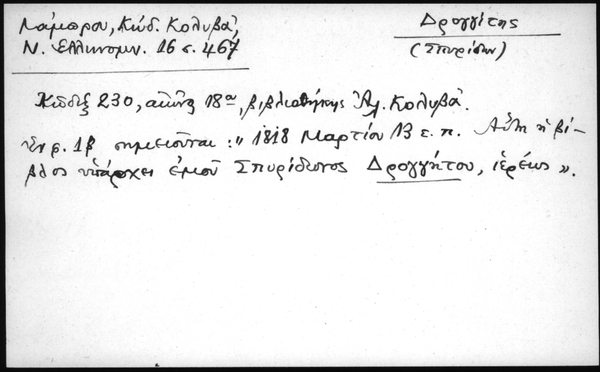 Λάμπρου, Κώδ. Κολυβᾶ,
Ν. Ελληνομν. 16 σ. 467
Δρογγίτης
(Σπυρίδων)
Κῶδιξ 230, αἰῶνος 18ου, βιβλιοθήκης Ἀλ. Κολυβᾶ.
Ἐν φ. 1β σημειοῦται: "1818 Μαρτίου 13 ε. π. Αὕτη ἡ βί-
βλος ὑπάρχει ἐμοῦ Σπυρίδωνος Δρογγήτου, ἱερέως".